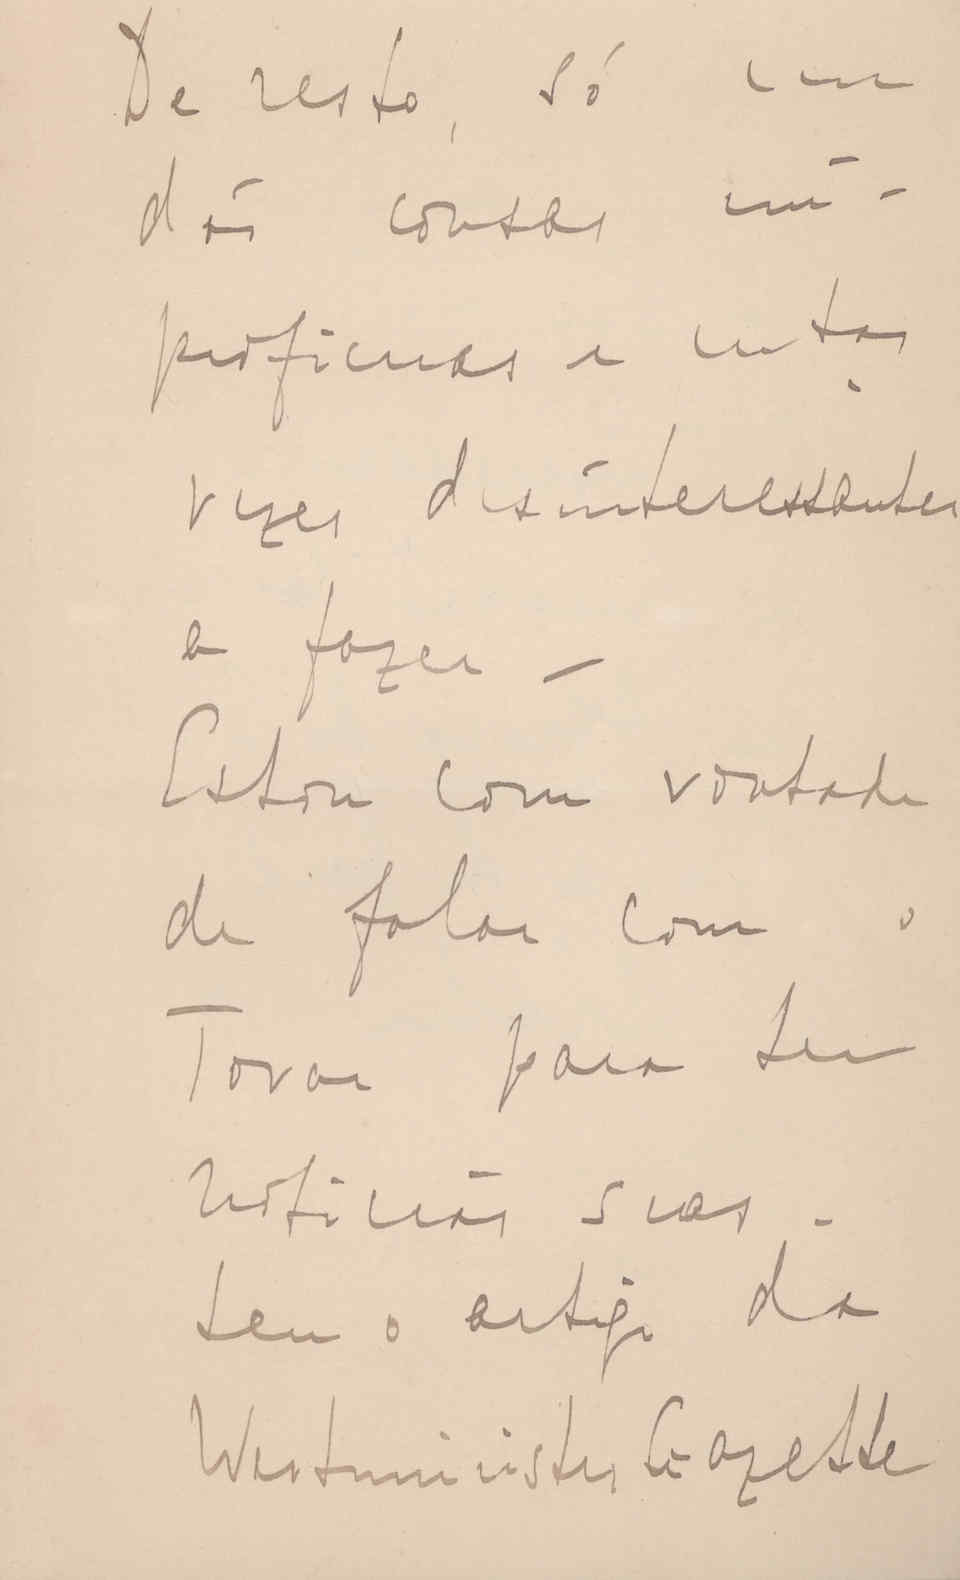 De resto, só me
dão cousas im-
proficuas e mtas
vezes desinteressantes
a fazer –
Estou com vontade
de falar com o
Tovar para ter
noticias suas.
ten o artigo da
Westminister Gazette